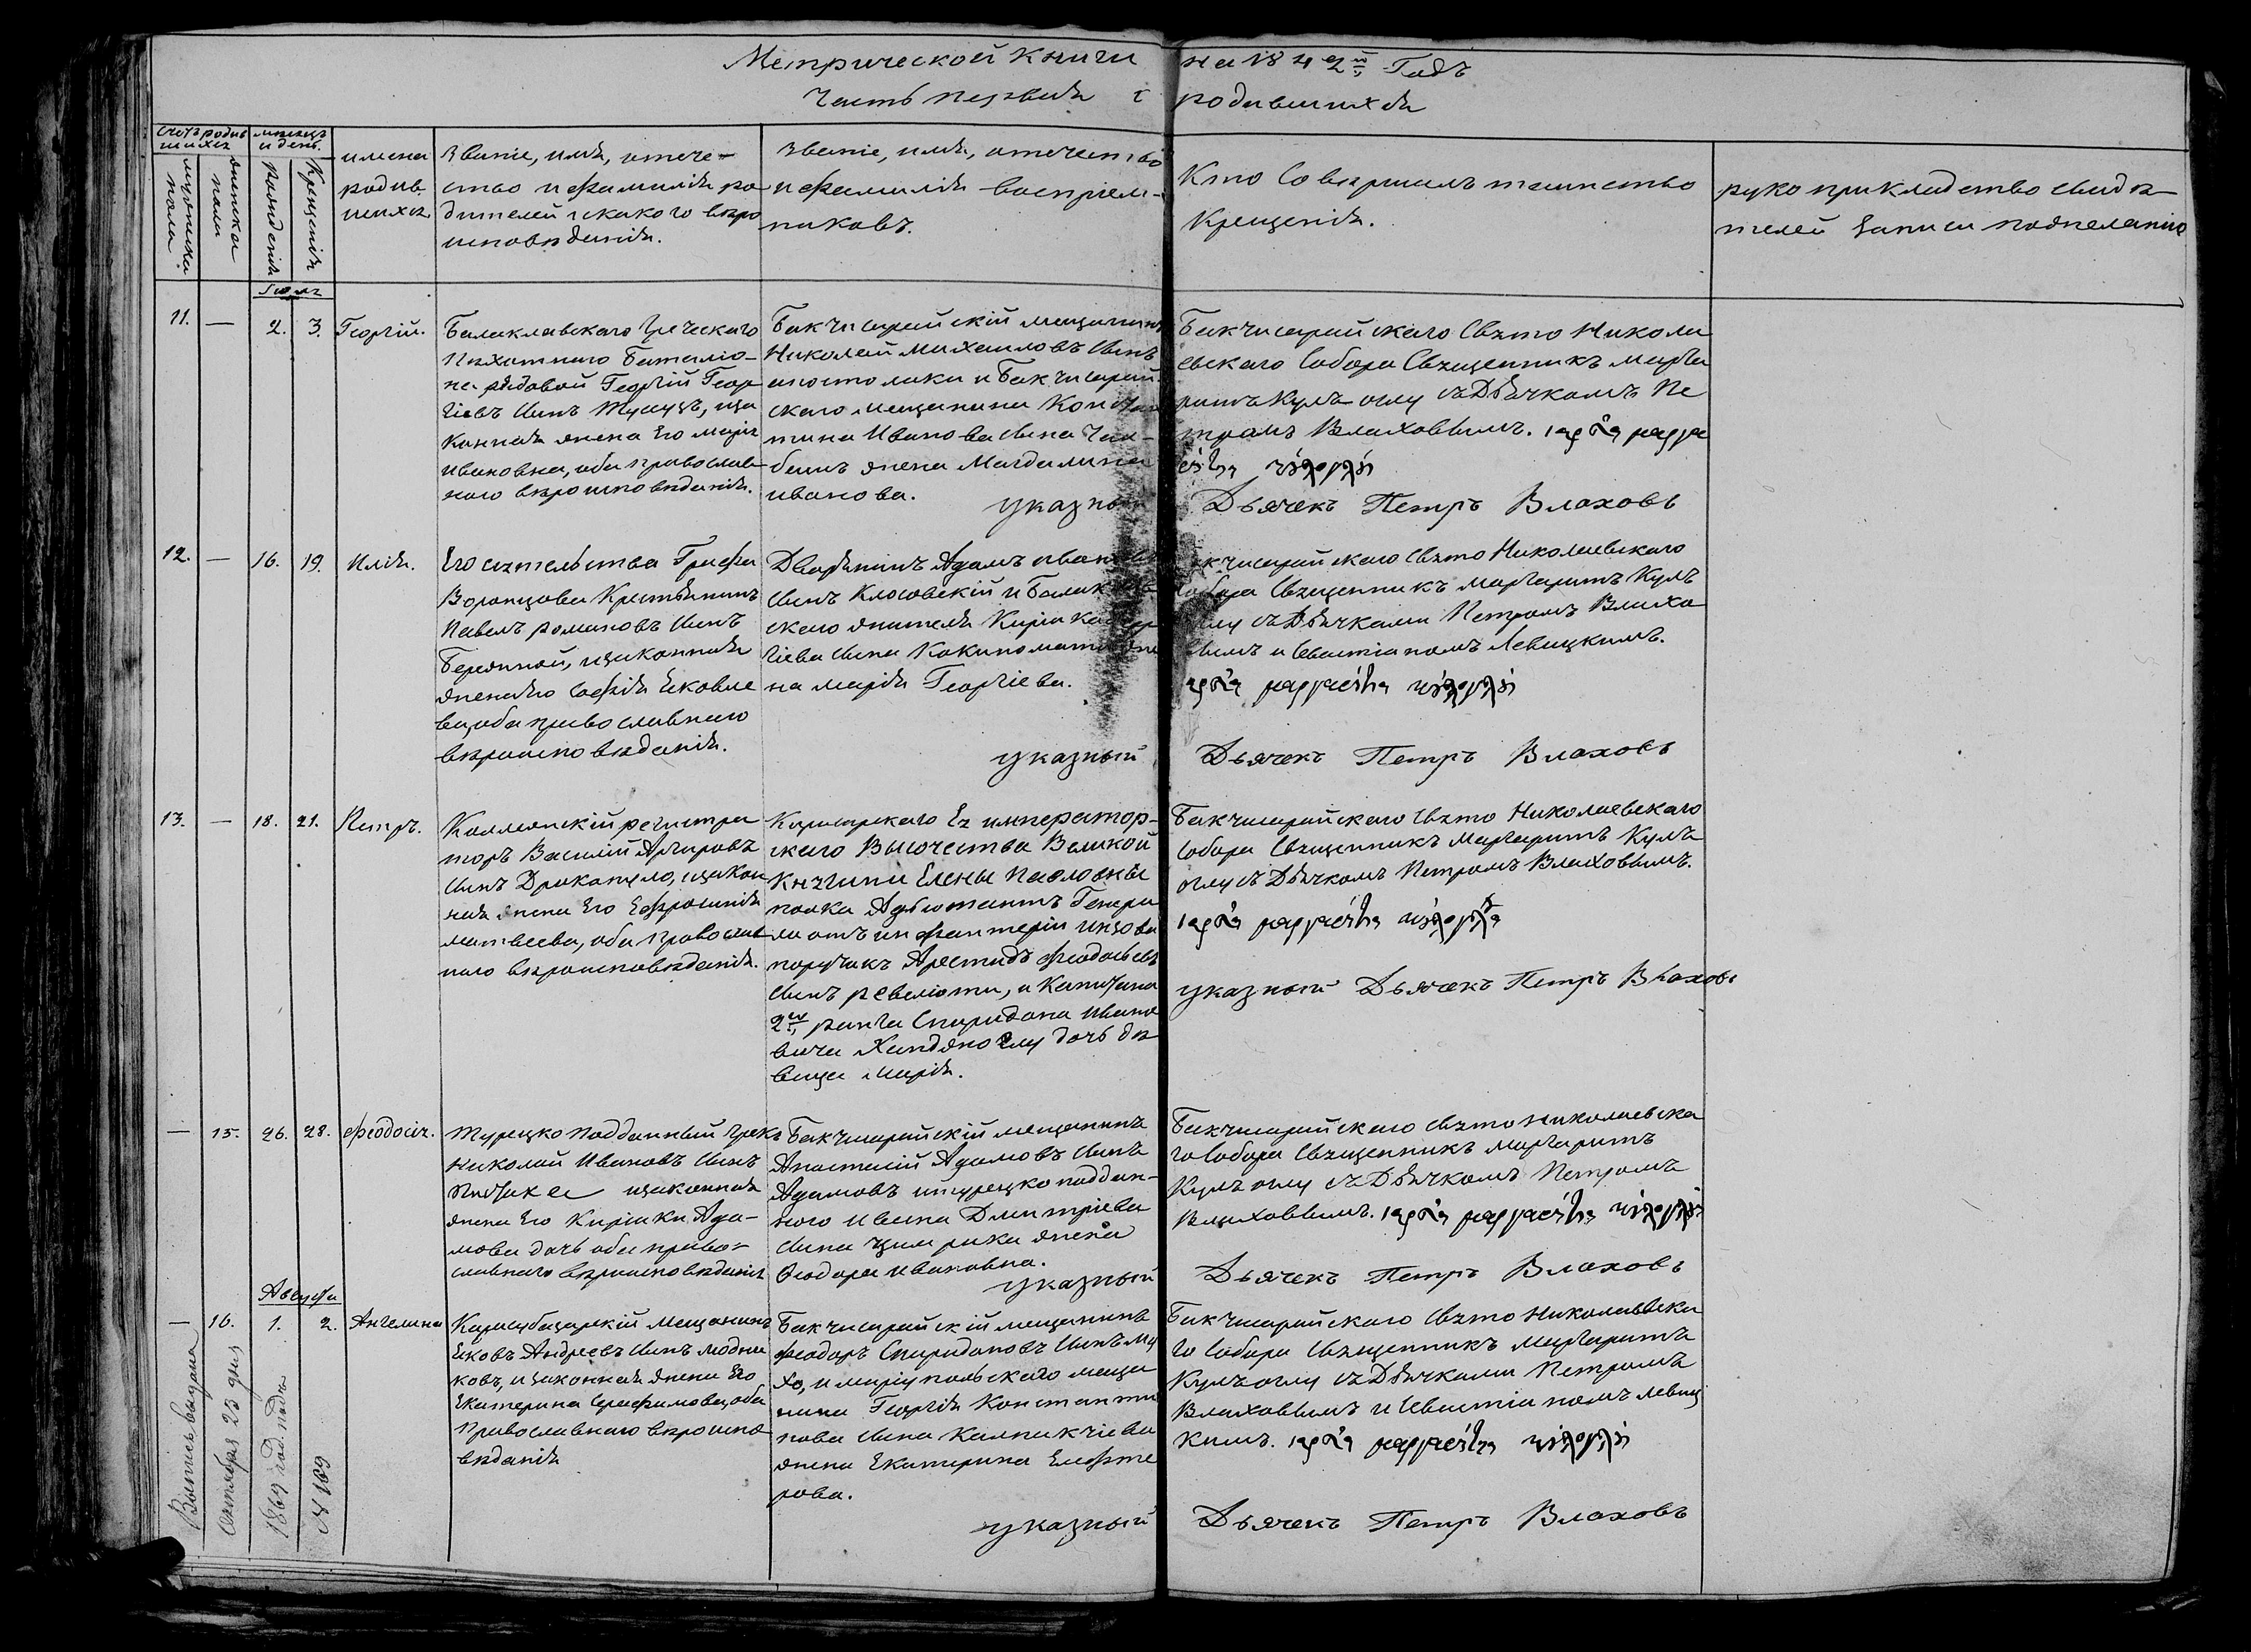 Метрической Книги на 1842й Годъ
Часть первая о родившихся
Счетъ родив
шихся
мѣсяцъ
и день.
мужеска
пола
женска
пола
Рожденія
Крещенія
имена
родив
шихся.
Званіе, имя, отече-
ство и фамилія ро-
дителей и какого вѣро
исповѣданія.
Званіе, имя, отечество
и фамилія воспріем-
никовъ.
Кто Совершилъ таинство
Крещенія.
руко прикладство свидѣ
телей записи по желанію
Іюль
11. — 2. 3. Георгій.
Балаклавскаго Греческаго
Пѣхотнаго Баталіо-
на рядовой Георгій Геор
гіевъ Сынъ
конная жена Его
Ивановна, оба православ
наго вѣроисповѣданія.
Бакчисарайскій мещанинъ
Николай Михаиловъ Сынъ
апостолаки и Бакчисарай
скаго мещанина Констан
тина Иванова Сына
жена Магдалина
иванова.
Указный
Бакчисарайскаго Свято Никола
евскаго Собора Священникъ Марга
ритъ Кулъ оглу съ Дьячкомъ Пе
тромъ Влаховымъ.
Дьячекъ Петръ Влаховъ
12. — 16. 19. Илія.
Его сіятельства Графа
Воронцова Крестьянинъ
Павелъ романовъ Сынъ
и законная
жена его Софія Ековле
ва, оба православнаго
вѣроисповѣданія.
Дворянинъ Адамъ
Сынъ Клосовскій и
скаго жителя
гіева Сына
на марія Георгіева.
Указный
Бакчисарайскаго Свято Николаевскаго
Собора Священникъ Маргаритъ Кулъ
оглу съ Дьячками Петромъ Влахо
вымъ и Севастіаномъ Левицкимъ.
Дьячекъ Петръ Влаховъ
13. — 18. 21. Петръ.
Коллежскій регистра
торъ Василій Аргировъ
Сынъ Дракопуло, и закон
ная жена Его Ефросинія
матвеева, оба православ
наго вѣроисповѣданія.
Ея император-
скаго Высочества Великой
Княгини Елены Павловны
полка Адъютантъ Генера
ла отъ инфантеріи инзова
поручикъ Аристидъ Феодосьевъ
Сынъ ревеліоти, и Капитана
2го ранга Спиридона Ивано
вича Ханджоглу дочь дѣ
вица Марія.
Бакчисарайскаго Свято Николаевскаго
Собора Священникъ Маргаритъ Кулъ
оглу съ Дьячкомъ Петромъ Влаховымъ.
указный Дьячекъ Петръ Влаховъ
— 15. 26. 28. Феодосія.
Турецко подданный Грекъ
Николай Ивановъ Сынъ
и законная
жена Его Киріаки Ада-
мова дочь оба право-
славнаго вѣроисповѣданія
Бакчисарайскій мещанинъ
Анастасій Адамовъ Сынъ
Адамовъ и турецко поддан-
ного Ивана Дмитріева
Сына жена
Феодора Ивановна.
Указный
Бакчисарайскаго Свято Николаевска
го Собора Священникъ Маргаритъ
Кулъ оглу съ Дьячкомъ Петромъ
Влаховымъ.
Дьячекъ Петръ Влаховъ
Августа
— 16. 1. 2. Ангелина
Карасубазарскій Мещанинъ
Ековъ Андреевъ Сынъ
ковъ, и законная жена Его
Екатерина Серафимова, оба
Православнаго вѣроиспо
вѣданія
Бакчисарайскій мещанинъ
Феодоръ Спиридоновъ Сынъ
и маріупольскаго меща
нина Георгія Константи
нова Сына Калпакчіева
жена Екатерина Елефте
рова.
Указный
Бакчисарайскаго Свято Николаевска
го Собора Священникъ Маргаритъ
Кулъ оглу съ Дьячками Петромъ
Влаховымъ и Севастіаномъ левиц
кимъ.
Дьячекъ Петръ Влаховъ
Выпись выдана
Октября 23 дня
1869 года
№ 169